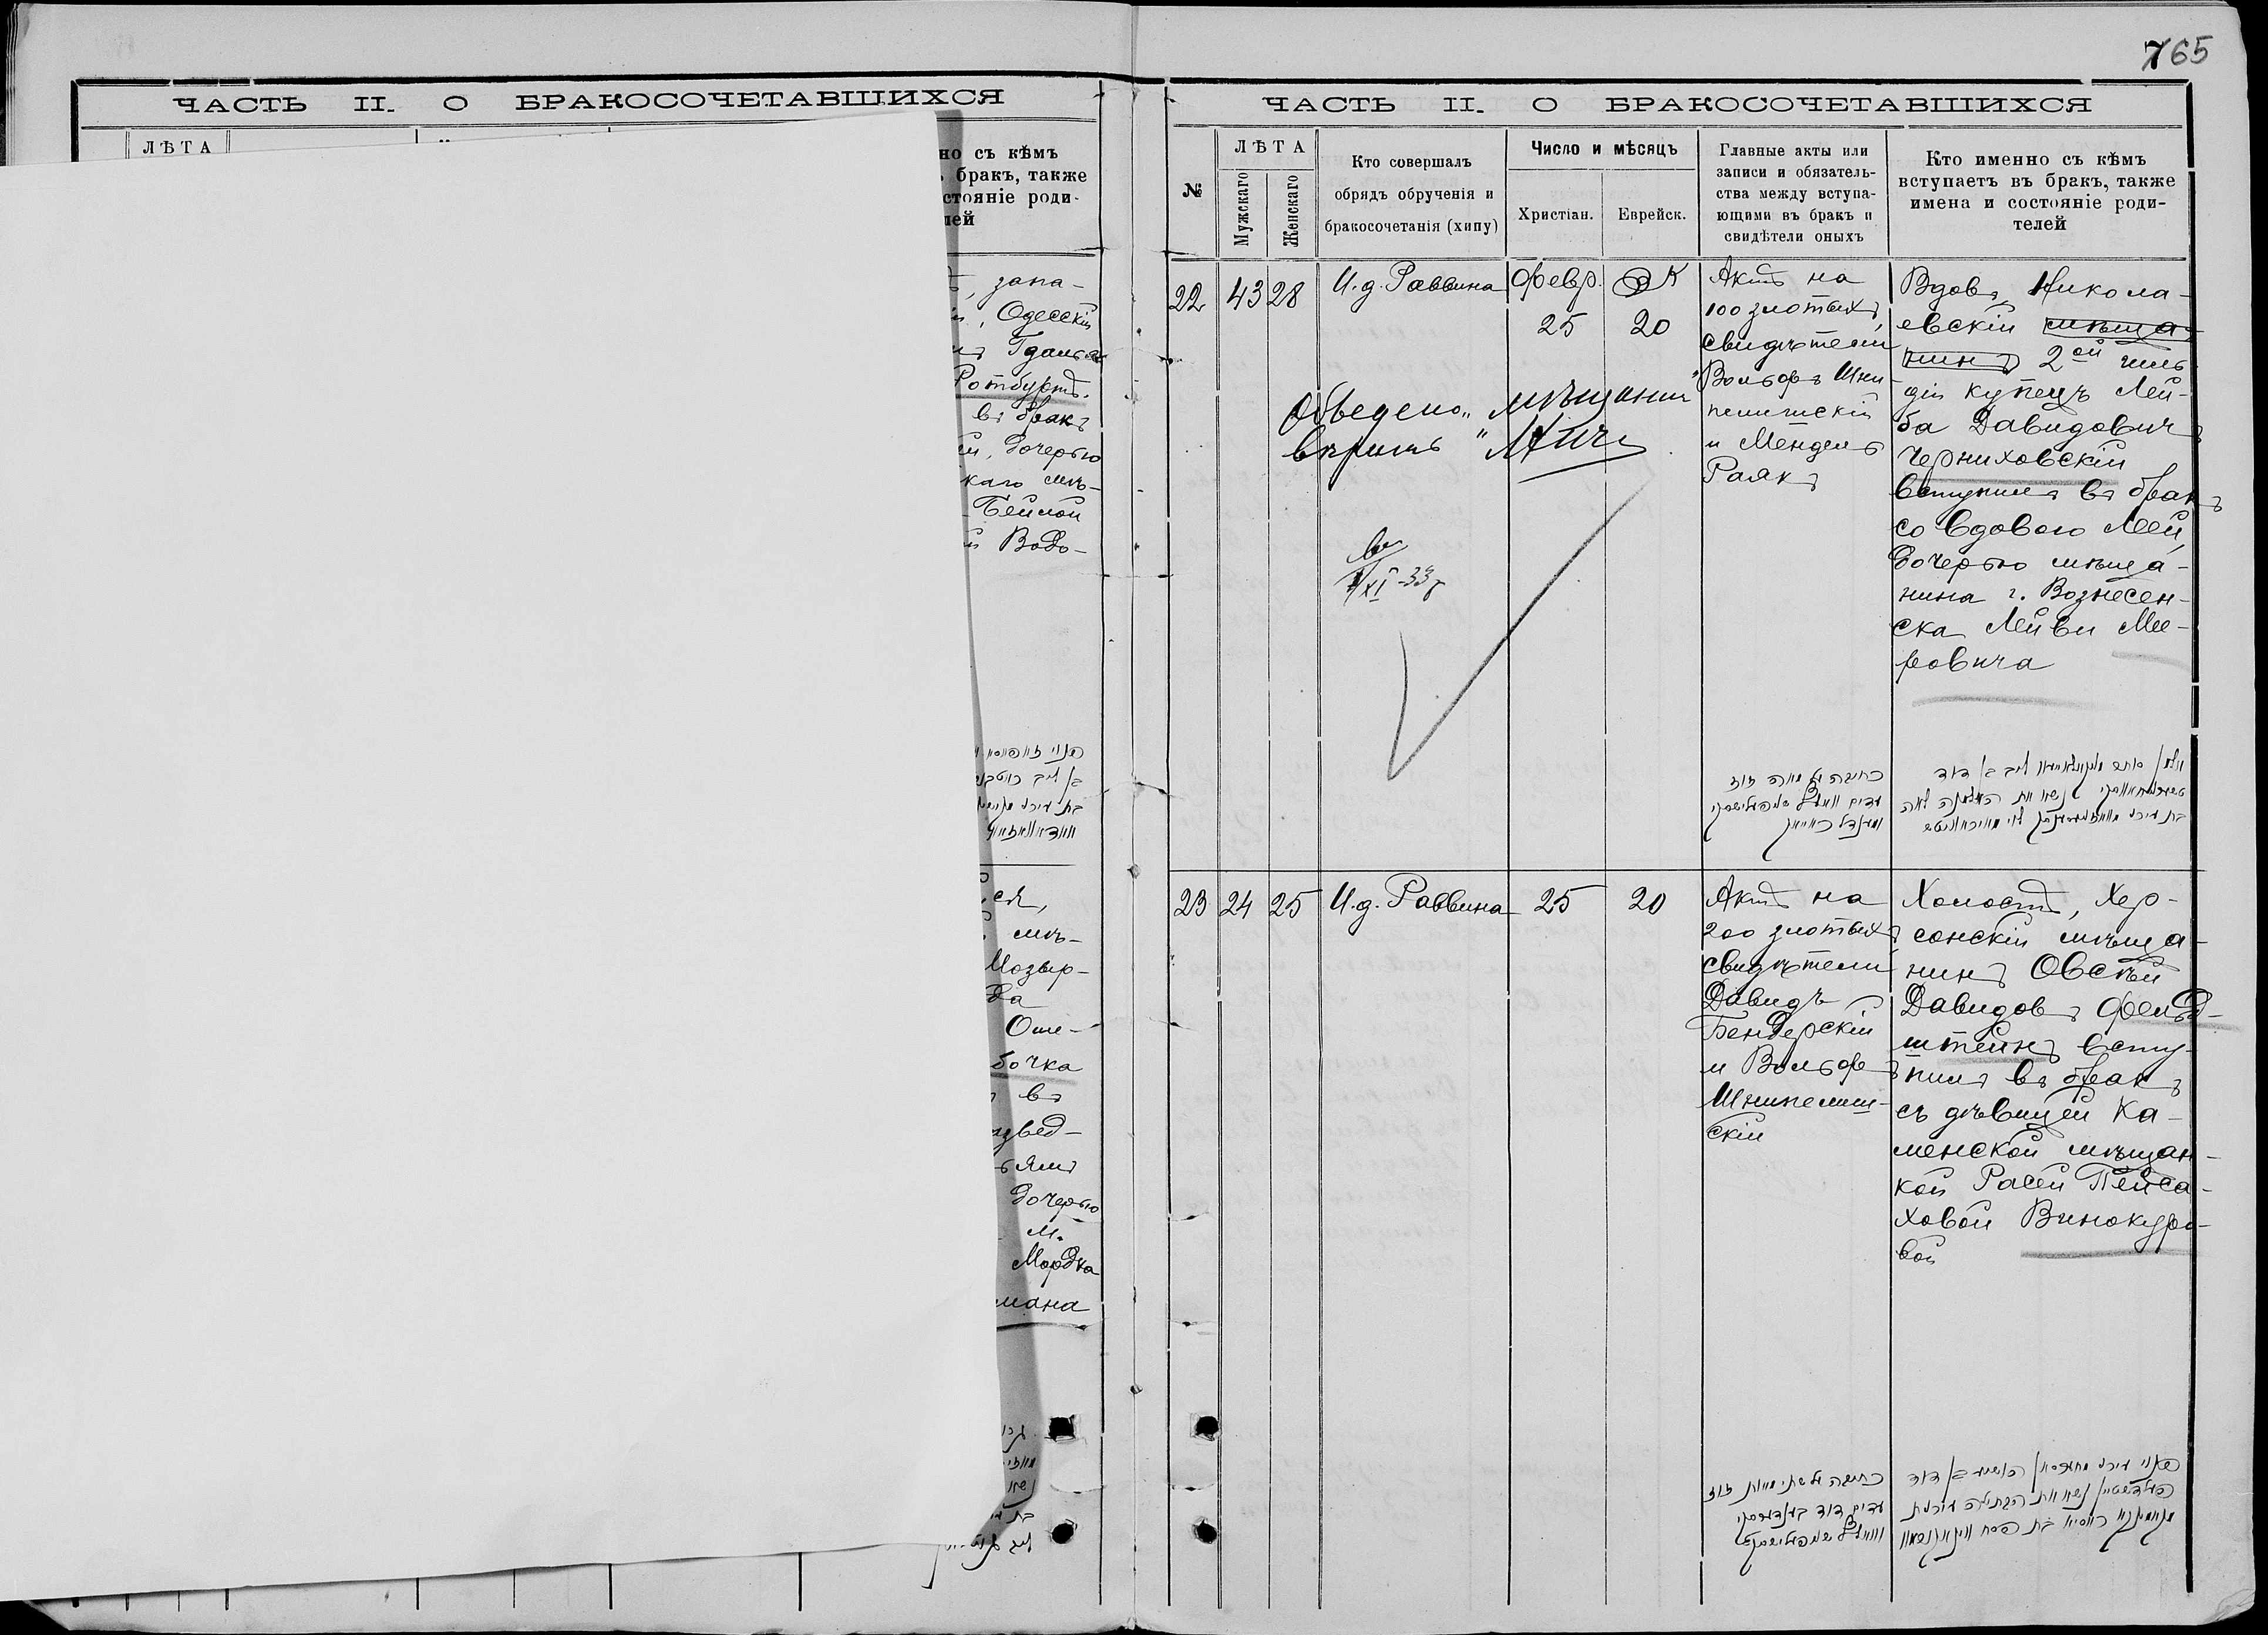 765
ЧАСТЬ II. О БРАКОСОЧЕТАВШИХСЯ
ЛѢТА
но съ кѣмъ
бракъ, также
стояніе роди-
лей
, запа-
, Одесскій
Ротбуртъ.
въ бракъ
дочерью
каго мѣ-
Бейлой
Водо-
мѣ-
Мозыр-
Оше-
бочка
въ
дочерью
м.
Мордка
мана
ЧАСТЬ II. О БРАКОСОЧЕТАВШИХСЯ
№
ЛѢТА
Мужскаго
Женскаго
Кто совершалъ
обрядъ обрученія и
бракосочетанія (хипу)
Число и мѣсяцъ
Христіан.
Еврейск.
Главные акты или
записи и обязатель-
ства между вступа-
ющими въ бракъ и
свидѣтели оныхъ
Кто именно съ кѣмъ
вступаетъ въ бракъ, также
имена и состояніе роди-
телей
22 43 28 И.д. Раввина Февр.
25 20
Актъ на
100 злотыхъ,
свидѣтели
Вольфъ Шни-
пелишскій
и Мендель
Раякъ
Вдовъ, Никола-
евскій мѣща-
нинъ 2ой гиль-
діи купецъ Лей-
ба Давидовичъ
Черниховскій
вступилъ въ бракъ
со вдовою Леей,
дочерью мѣща-
нина г. Вознесен-
ска Лейви Мее-
ровича
Обведено „мѣщанинъ"
вѣрить
XI-33г
כתובה על מאה זוז
עדים וואלף שניפעלישסקי
ומענדל ראיאק
23 24 25 И.д. Раввина 25 20
Актъ на
200 злотыхъ
свидѣтели
Давидъ
Бендерскій
и Вольфъ
Шнипелиш-
скій
Холостъ, Хер-
сонскій мѣща-
нинъ Овсѣй
Давидовъ Фельд-
штейнъ всту-
пилъ въ бракъ
съ дѣвицей Ка-
менской мѣщан-
кой Расей Пейса-
ховой Винокуро-
вой
כתובה על שתי מאות זוז
עדים דוד בענדערסקי
וואלף שניפעלישסקי